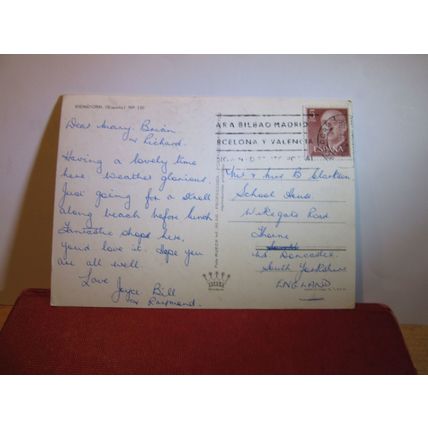 BENIDORM. (España) Nº 110
Dear Mary, Brian
& Richard.
Having a lovely time
here weather glorious.
Just going for a stroll
along beach before lunch
Fantastic shops here,
you'd love it. Hope you
are all well.
Love
Joyce Bill
& Raymond.
ARA BILBAO MADRID
RCELONA Y VALENCIA
5
ESPAÑA
Mr & Mrs B
School House
Road
Thorne
Nr. Doncaster
South Yorkshire
ENGLAND